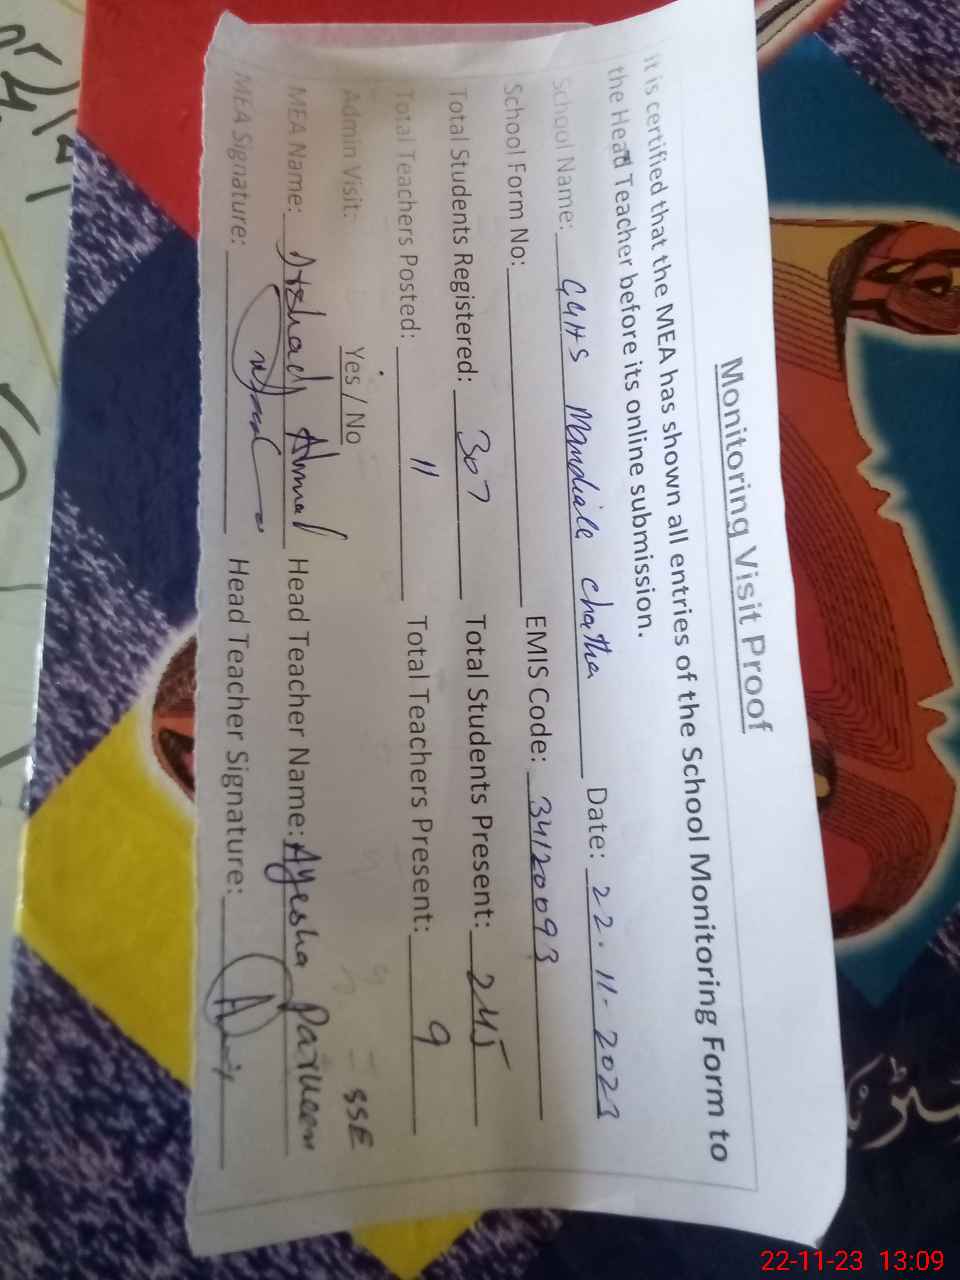 Monitoring Visit Proof
it is certified that the MEA has shown all entries of the School Monitoring Form to
the Head Teacher before its online submission.
School Name: GGHS Mandiala chatha Date: 22.11-2023
School Form No: EMIS Code: 34120093
Total Students Registered: 307 Total Students Present: 245
Total Teachers Posted: 11 Total Teachers Present: 9
Admin Visit: Yes / No SSE
MEA Name: Arshad Ahmad Head Teacher Name: Ayesha Parveen
MEA Signature: Head Teacher Signature:
22-11-23 13:09